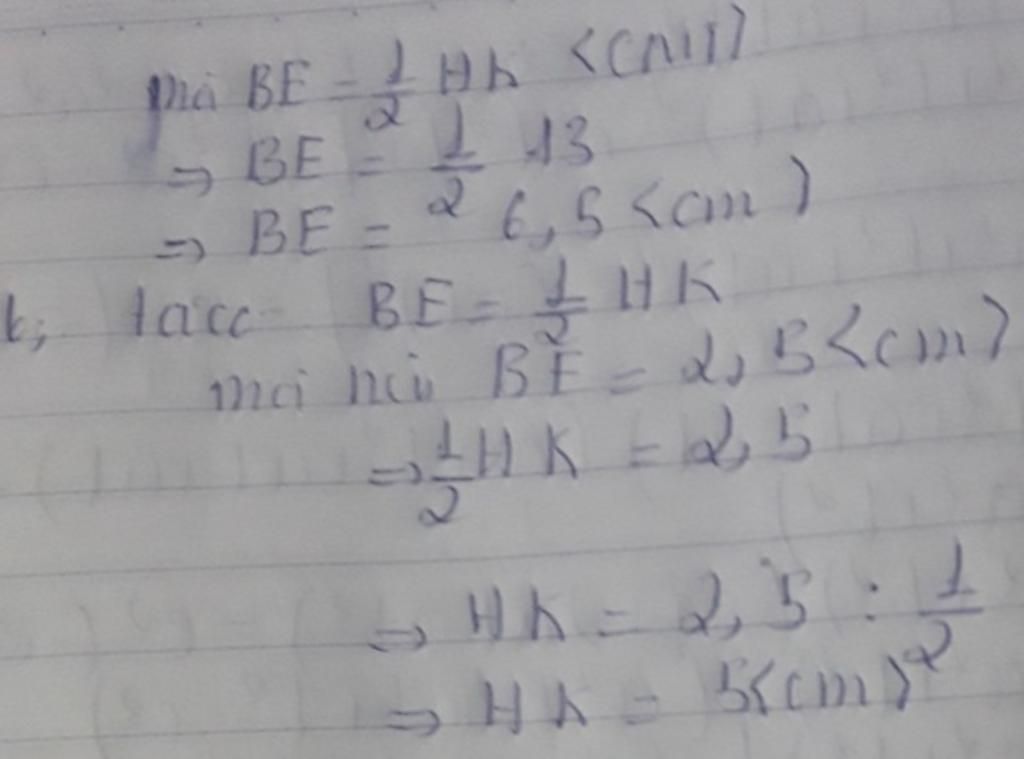 mà BE = 1/2 HK <cm>
⇒ BE = 1/2 13
⇒ BE = 6,5 <cm>
b, ta có BE = 1/2 HK
mà BE = 2,5 <cm>
⇒ 1/2 HK = 2,5
⇒ HK = 2,5 : 1/2
⇒ HK = 5 <cm>